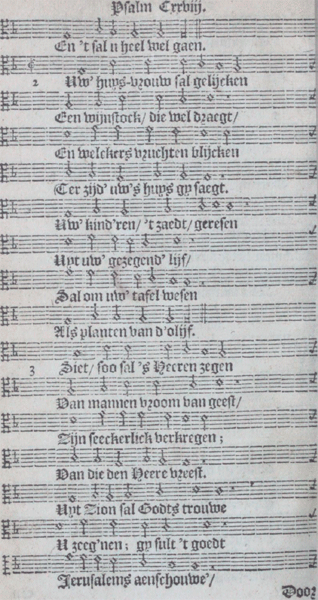 Psalm Cxxviij.
En 't sal u heel wel gaen.
2 Uw' huys-vrouw sal gelijcken
Een wijnstock/ die wel draegt/
En welckers vruchten blijcken
Ter zijd' uw's huys gy saegt.
Uw' kind'ren/ 't zaedt/ geresen
Uyt uw' gezegend' lijf/
Sal om uw' tafel wesen
Als planten van d'olijf.
3 Siet/ soo sal 's Heeren zegen
Dan mannen vroom van geest/
Zijn seeckerliek verkregen;
Van die den Heere vreest.
Uyt Zion sal Godts trouwe
U zeeg'nen; gy sult 't goedt
Jerusalems aenschouwe'/
Door